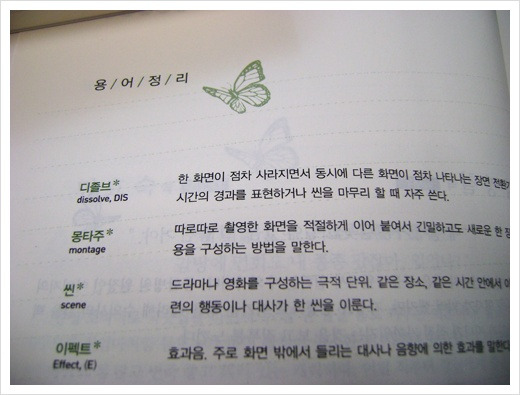 용/어/정/리
디졸브* 한 화면이 점차 사라지면서 동시에 다른 화면이 점차 나타나는 장면
dissolve, DIS 시간의 경과를 표현하거나 씬을 마무리 할 때 자주 쓴다.
몽타주* 따로따로 촬영한 화면을 적절하게 이어 붙여서 긴밀하고도 새로운 한
montage 용을 구성하는 방법을 말한다.
씬* 드라마나 영화를 구성하는 극적 단위. 같은 장소, 같은 시간 안에서
scene 련의 행동이나 대사가 한 씬을 이룬다.
이펙트* 효과음. 주로 화면 밖에서 들리는 대사나 음향에 의한 효과를 말한다
Effect, (E)